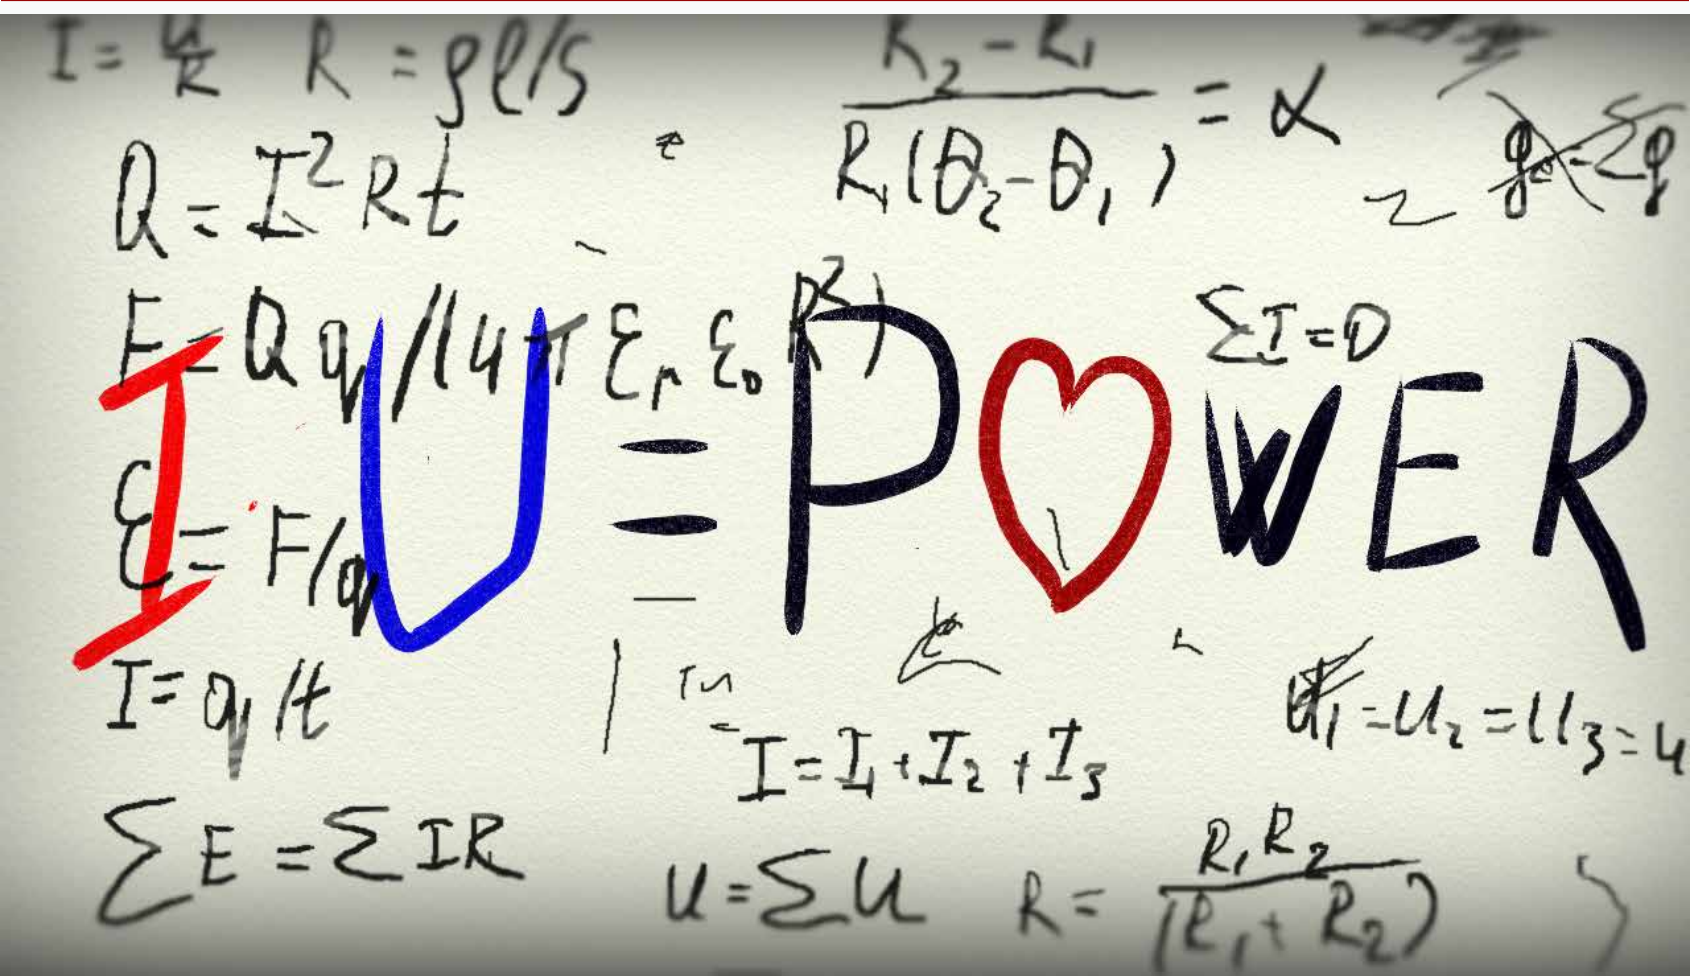 I = U/R R = ρℓ/S
(R₂ - R₁) / (R₁(θ₂-θ₁)) = α
Q = I²Rt
F = Qq/(4πεrε₀R²)
ΣI=0
I U = POWER
ε = F/q
I = q/t
I = I₁ + I₂ + I₃
U₁ = U₂ = U₃ = U
ΣE = ΣIR
U = ΣU R = R₁R₂ / (R₁ + R₂)